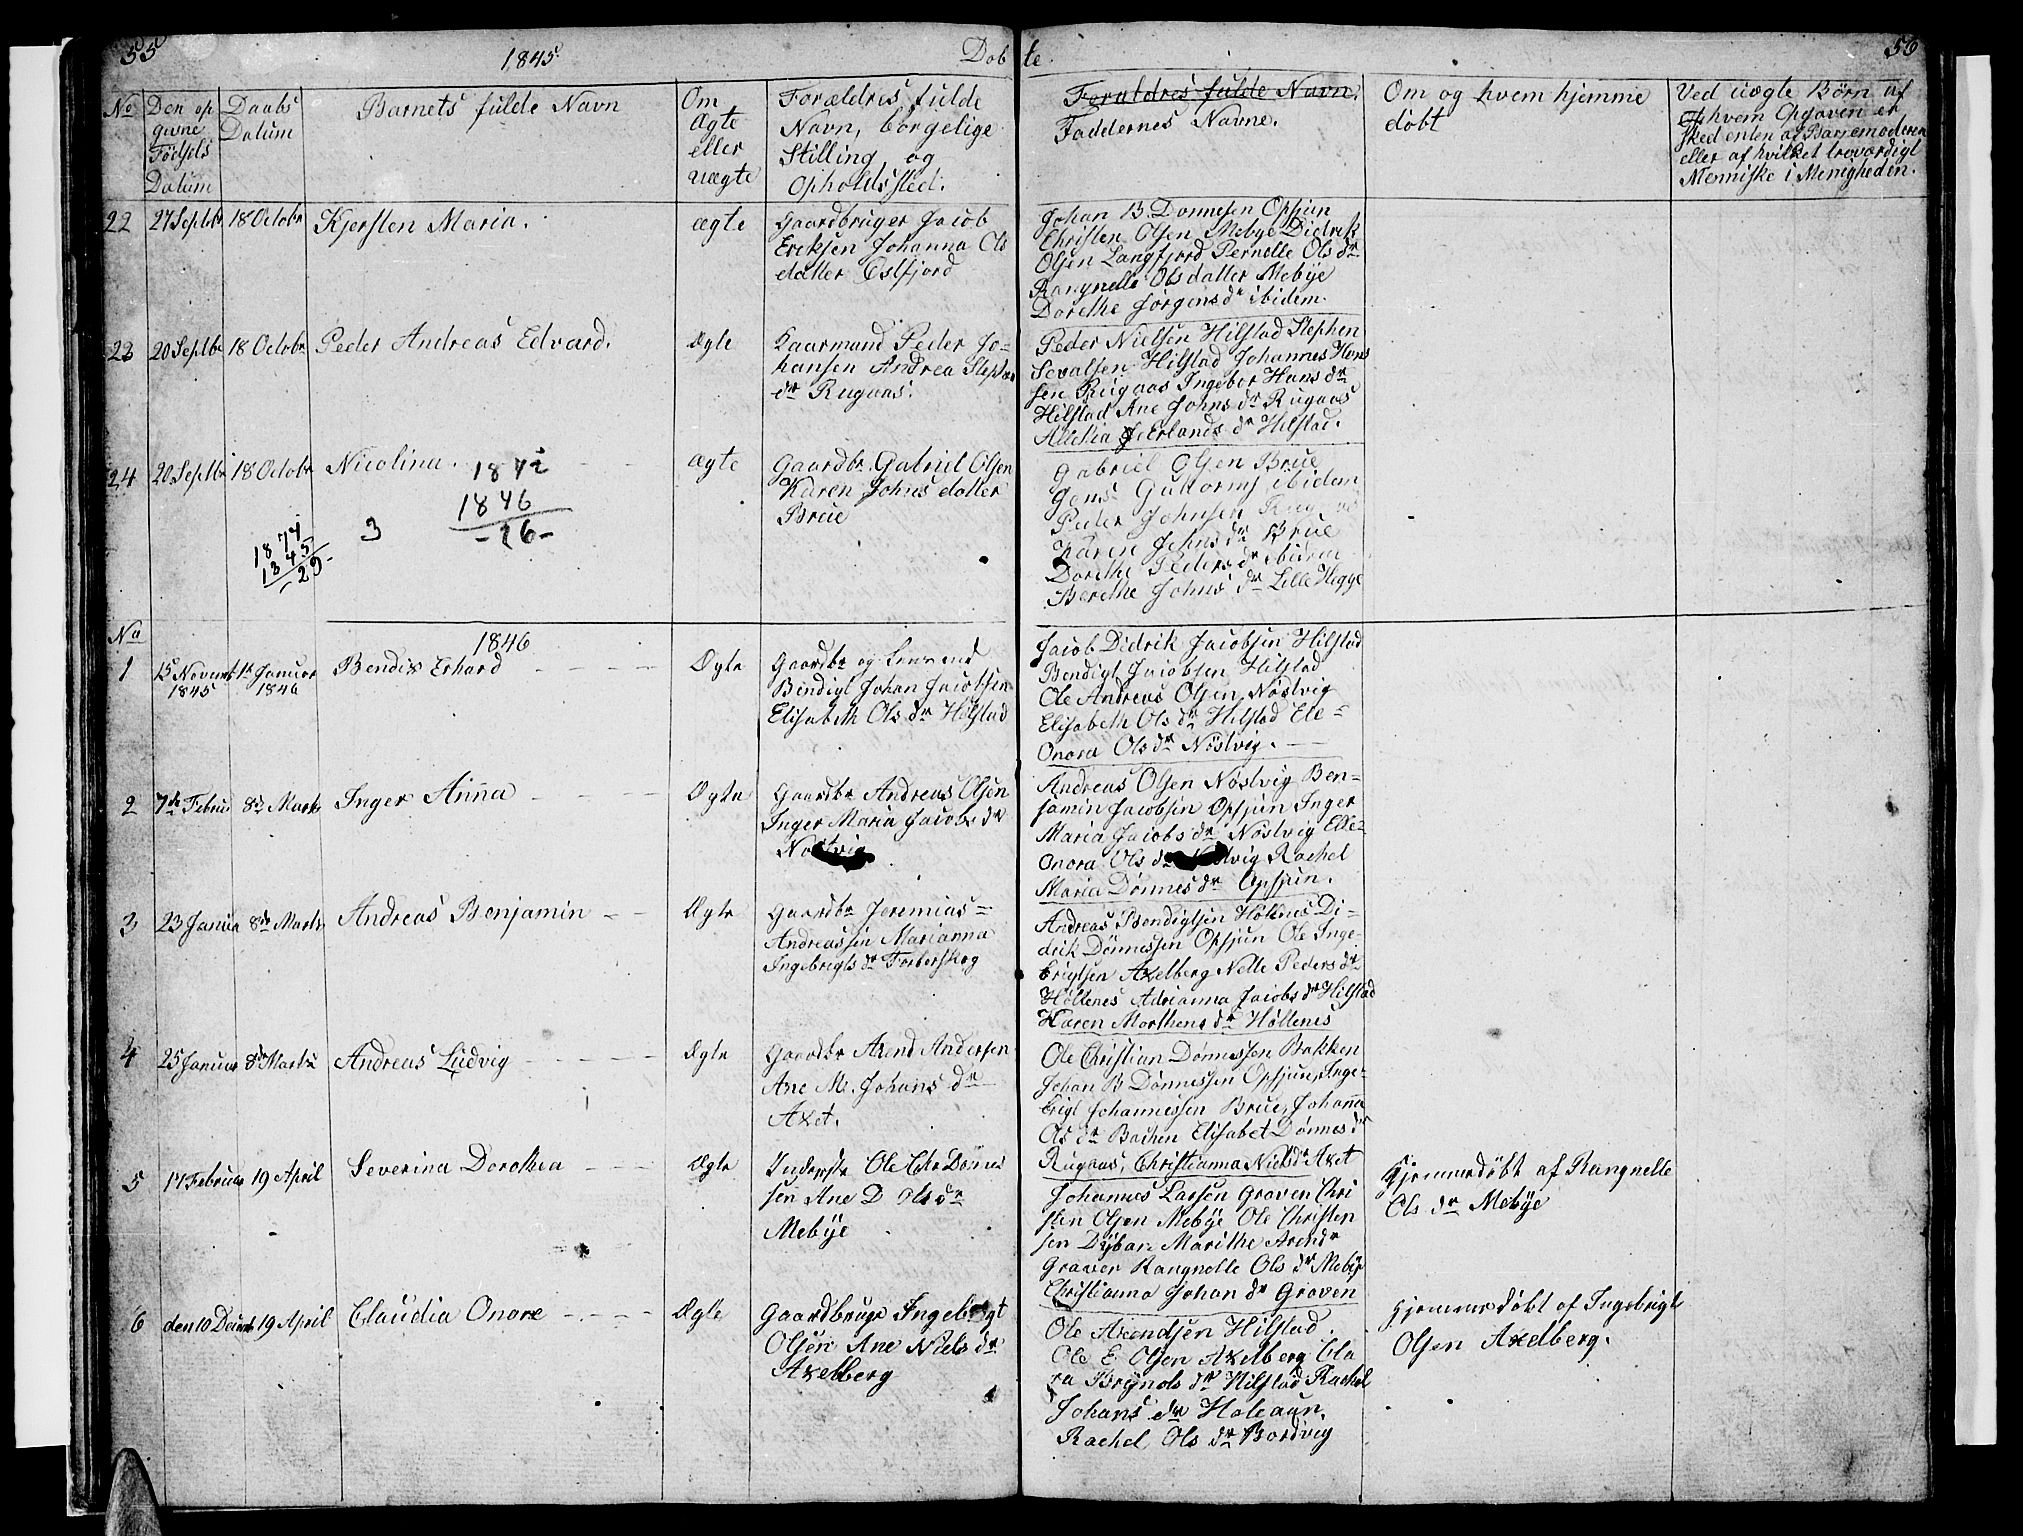 55
1845
Døbte
56
No
Den op
givne
Fødsels
Datum
Daabs
Datum
Barnets fulde Navn
Om
Ægte
eller
uægte
Forældres fulde
Navn, borgelige
Stilling, og
Opholdssted.
Foraldres fulde Navn.
Faddernes Navne.
Om og hvem hjemme
døbt
Ved uægte Børn af
hvem Opgaven er
sked enten af Barnemoderen
eller af hvilket troværdigt
Menniske i Menigheden.
22
27 Septbr
18 Octobr
Kjersten Maria.
ægte
Gaardbruger Jacob
Eriksen Johanna Ols
datter Østfjord
Johan B. Dønnesen Opsjun
Christen Olsen Mebye Didrik
Olsen Langfjord Pernelle Ols dr
Rangnelle Olsdatter Mebye
Dorethe Jørgens dr ibidem.
23
20 Septbr
18 Octobr
Peder Andreas Edvard.
Ægte
Kaarmand Peder Jo-
hansen Andrea Stephen
dr Rugaas.
Peder Nielsen Hilstad Stephen
Sevalsen Hilstad Johannes Hans
sen Rugaas Ingebor Hans dr
Hilstad Ane Johns dr Rugaas
Erlands dr Hilstad.
24
20 Septbr
18 Octobr
Nicolina.
ægte
Gaardbr. Gabriel Olsen
Karen Johns datter
Brue
Gabriel Olsen Brue
Jens Guttorms ibidem
Peder Johnsen
Karen Johns dr Brue
Dorethe Peders dr ibidem
Berethe Johns dr Lille Hegge
1846
-26-
3
1874
1845
-29-
No
1846
1
15 Novemb
1845
1te Januar
1846
Bendix Erhard
Ægte
Gaardbr og
Bendigt Johan Jacobsen
Elisabeth Ols dr Hilstad
Jacob Didrik Jacobsen Hilstad
Bendigt Jacobsen Hilstad
Ole Andreas Olsen Nöstvig
Elisabeth Ols dr Hilstad Ele-
Onora Ols dr Nöstvig.
2
7de Februar
8de Marts
Inger Anna
Ægte
Gaardbr Andreas Olsen
Inger Maria Jacobs dr
Nöstvig
Andreas Olsen Nöstvig Ben-
jamin Jacobsen Opsjun Inger
Maria Jacobs dr Nöstvig Elle-
Onora Ols dr Nöstvig Rachel
Maria Dønnes dr Opsjun.
3
23 Januar
8de Marts
Andreas Benjamin
Ægte
Gaardbr Jeremias
Andreassen Marianna
Ingebrigts dr Forberskog
Andreas Bendigtsen Höltnes Di-
drik Dønnessen Opsjun Ole Inge-
brigtsen Axelberg Nelle Peders dr
Höltenes Adrianna Jacobs dr Hilstad
Karen Morthens dr Höltenes
4
25 Januar
8de Marts
Andreas Ludvig
Ægte
Gaardbr Arend Andersen
Ane M. Johans dr
Axet.
Ole Christian Dønnessen Bakken
Johan B Dönnessen Opsjun, Inge-
brigt Johannessen Brue, Johanna
Ols dr Bachen Elisabet Dønnes dr
Rugaas, Christianna Niels dr Axet
5
17 Februar
19 April
Severina Dorothea
Ægte
Inderste Ole Chr Dønnes
sen Ane D Ols dr
Mebye
Johannes Larsen Graven Chri
sten Olsen Mebye Ole Christen
sen Marithe Arends dr
Graven Rangnelle Ols dr Mebye
Christianna Johan dr Graven
Hjemmedøbt af Rangnelle
Ols dr Mebye
6
den 10 Decemb
19 April
Claudia Onore
Ægte
Gaardbruger Ingebrigt
Olsen Ane Niels dr
Axelberg
Ole Arendsen Hilstad
Ole E Olsen Axelberg Cla
ra Brynols dr Hilstad Rachel
Johans dr Holeaun.
Rachel Ols dr Bordvig
Hjemmedøbt af Ingebrigt
Olsen Axelberg.